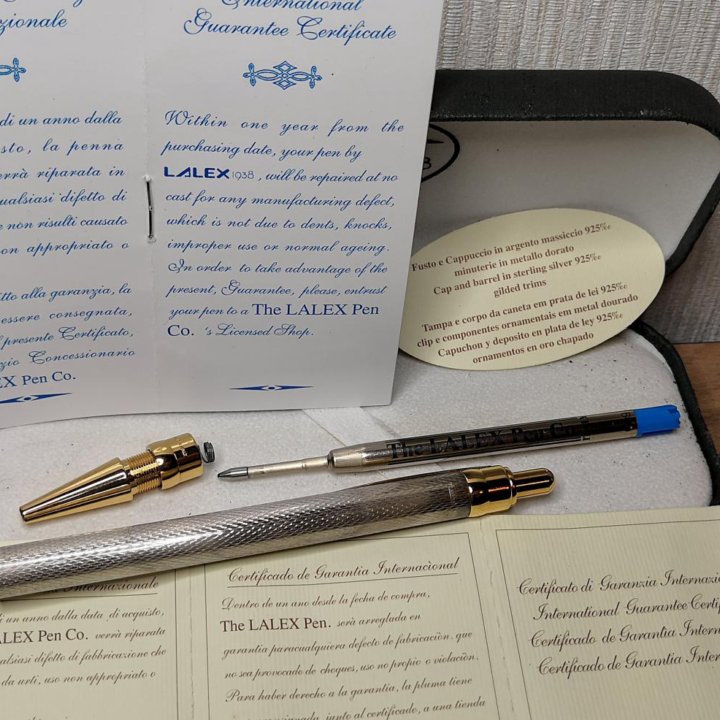 zionale
di un anno dalla
sto, la penna
errà riparata in
ualsiasi difetto di
e non risulti causato
on appropriato o
tto alla garanzia, la
essere consegnata,
l presente Certificato,
zio Concessionario
EX Pen Co.
International
Guarantee Certificate
Within one year from the
purchasing date, your pen by
LALEX 1938, will be repaired at no
cast for any manufacturing defect,
which is not due to dents, knocks,
improper use or normal ageing.
In order to take advantage of the
present, Guarantee, please, entrust
your pen to a The LALEX Pen
Co. 's Licensed Shop.
Fusto e Cappuccio in argento massiccio 925‰
minuterie in metallo dorato
Cap and barrel in sterling silver 925‰
gilded trims
Tampa e corpo da caneta em prata de lei 925‰
clip e componentes ornamentais em metal dourado
Capuchon y deposito en plata de ley 925‰
ornamentos en oro chapado
The LALEX Pen Co.
Internazionale
i un anno dalla data di acquisto,
ALEX Pen Co. verrà riparata
ualsiasi difetto di fabbricazione che
da urti, uso non appropriato o
Certificado de Garantia Internacional
Dentro de un ano desde la fecha de compra,
The LALEX Pen. serà arreglada en
garantia paracualquiera defecto de fabricaciòn. que
no sea provocado de choques, uso no propio o violaciòn.
Para haber derecho a la garantia, la pluma tiene
junto al certificado, a una tienda
Certificato di Garanzia Internazi
International Guarantee Certif
Certificado de Garantia Intern
Certificado de Garantia Intern